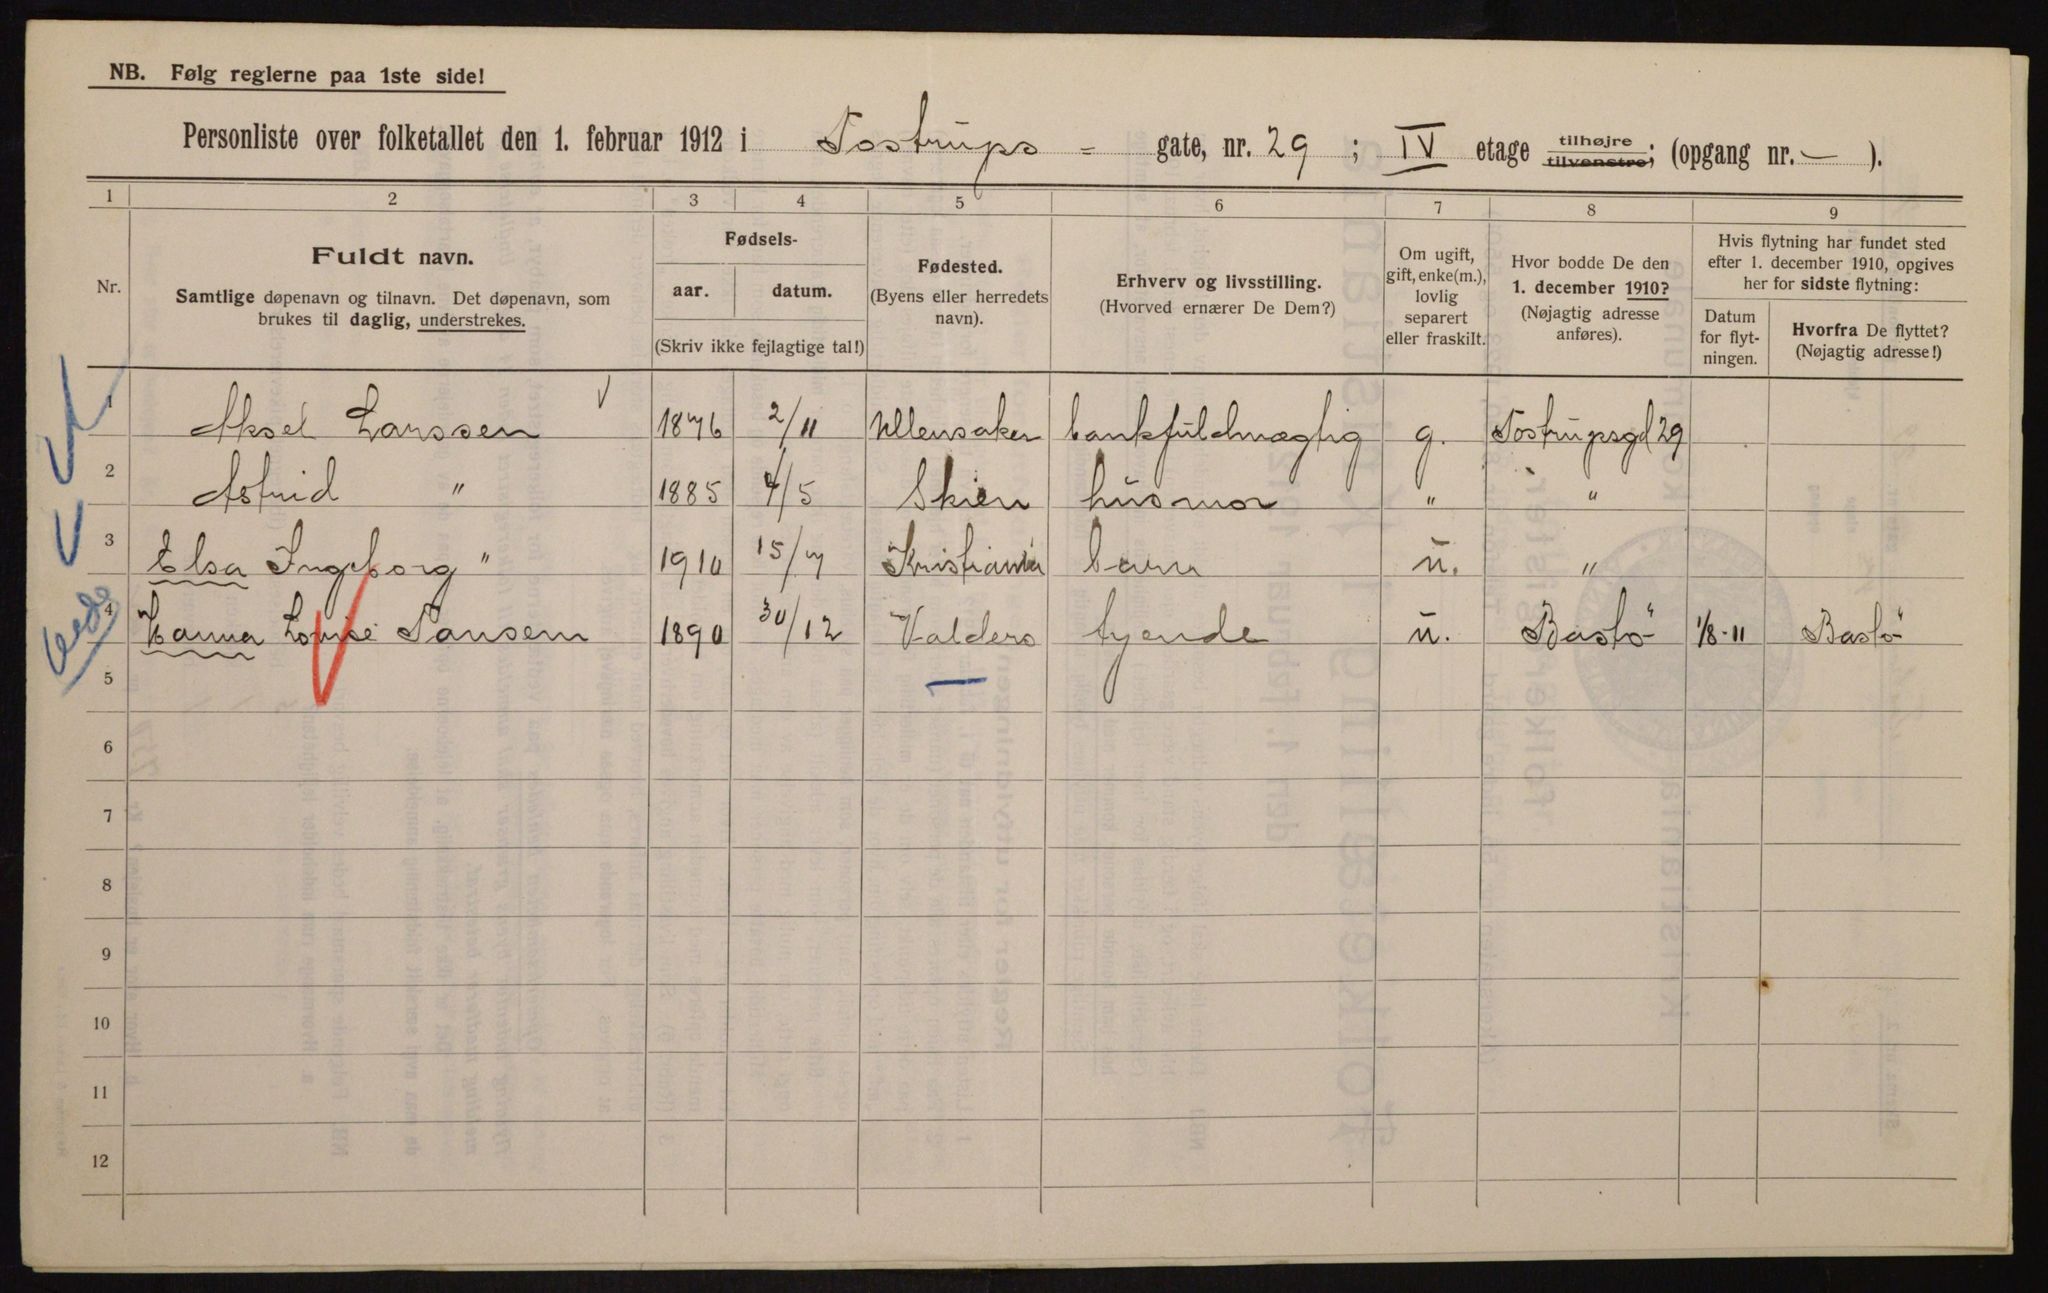 NB. Følg reglerne paa 1ste side!
Personliste over folketallet den 1. februar 1912 i Tostrups - gate, nr. 29 ; IV etage tilhøjre tilvenstre; (opgang nr. — ).
1 2 3 4 5 6 7 8 9
Nr.
Fuldt navn.
Samtlige døpenavn og tilnavn. Det døpenavn, som
brukes til daglig, understrekes.
Fødsels-
aar. datum.
(Skriv ikke fejlagtige tal!)
Fødested.
(Byens eller herredets
navn).
Erhverv og livsstilling.
(Hvorved ernærer De Dem?)
Om ugift,
gift, enke(m.),
lovlig
separert
eller fraskilt.
Hvor bodde De den
1. december 1910?
(Nøjagtig adresse
anføres).
Hvis flytning har fundet sted
efter 1. december 1910, opgives
her for sidste flytning:
Datum
for flyt-
ningen.
Hvorfra De flyttet?
(Nøjagtig adresse!)
1 Aksel Larssen 1876 2/11 Ullensaker bankfuldmægtig g. Tostrupsgd 29
2 Astrid " 1885 4/5 Skien husmor " "
3 Elsa Ingeborg " 1910 15/7 Kristiania barn u. "
4 Hanna Lovise Jansem 1890 30/12 Valders tjende u. Bastö 1/8-11 Bastö
5
6
7
8
9
10
11
12